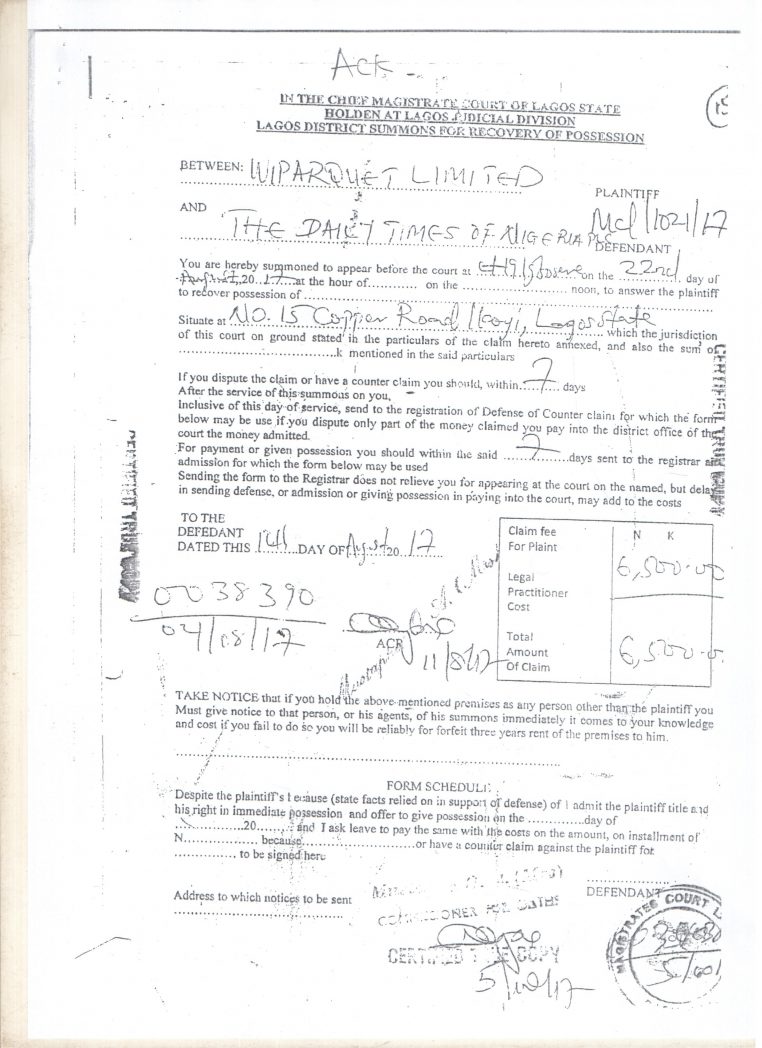 Ack
IN THE CHIEF MAGISTRATE COURT OF LAGOS STATE
HOLDEN AT LAGOS JUDICIAL DIVISION
LAGOS DISTRICT SUMMONS FOR RECOVERY OF POSSESSION
BETWEEN: WIPARQUET LIMITED
PLAINTIFF
AND
MCL/1021/17
THE DAILY TIMES OF NIGERIA PLC
DEFENDANT
You are hereby summoned to appear before the court at on the 22nd day of
August 20 17 at the hour of........... on the .............................. noon, to answer the plaintiff
to recover possession of
Situate at NO. 15 Copper Road Ikoyi, Lagos State which the jurisdiction
of this court on ground stated in the particulars of the claim hereto annexed, and also the sum of
..............................k mentioned in the said particulars
If you dispute the claim or have a counter claim you should, within 7 days
After the service of this summons on you,
Inclusive of this day of service, send to the registration of Defense of Counter claim for which the form
below may be use if you dispute only part of the money claimed you pay into the district office of the
court the money admitted.
For payment or given possession you should within the said 7 days sent to the registrar an
admission for which the form below may be used
Sending the form to the Registrar does not relieve you for appearing at the court on the named, but delay
in sending defense, or admission or giving possession in paying into the court, may add to the costs
CERTIFIED TRUE COPY
TO THE
DEFEDANT
DATED THIS 14 DAY OF August 20 17
Claim fee N K
For Plaint 6,500.00
Legal
Practitioner
Cost
Total
Amount 6,500.0
Of Claim
0038390
04/08/17
ACR
11/8/17
TAKE NOTICE that if you hold the above-mentioned premises as any person other than the plaintiff you
Must give notice to that person, or his agents, of his summons immediately it comes to your knowledge
and cost if you fail to do so you will be reliably for forfeit three years rent of the premises to him.
FORM SCHEDULE
Despite the plaintiff's because (state facts relied on in support of defense) of I admit the plaintiff title and
his right in immediate possession and offer to give possession on the ..............day of
....................20........ and I ask leave to pay the same with the costs on the amount, on installment of
N................. because..............................or have a counter claim against the plaintiff for
............... to be signed here
DEFENDANT
Address to which notices to be sent
COMMISSIONER FOR OATHS
CERTIFIED TRUE COPY
5/10/17
MAGISTRATES COURT